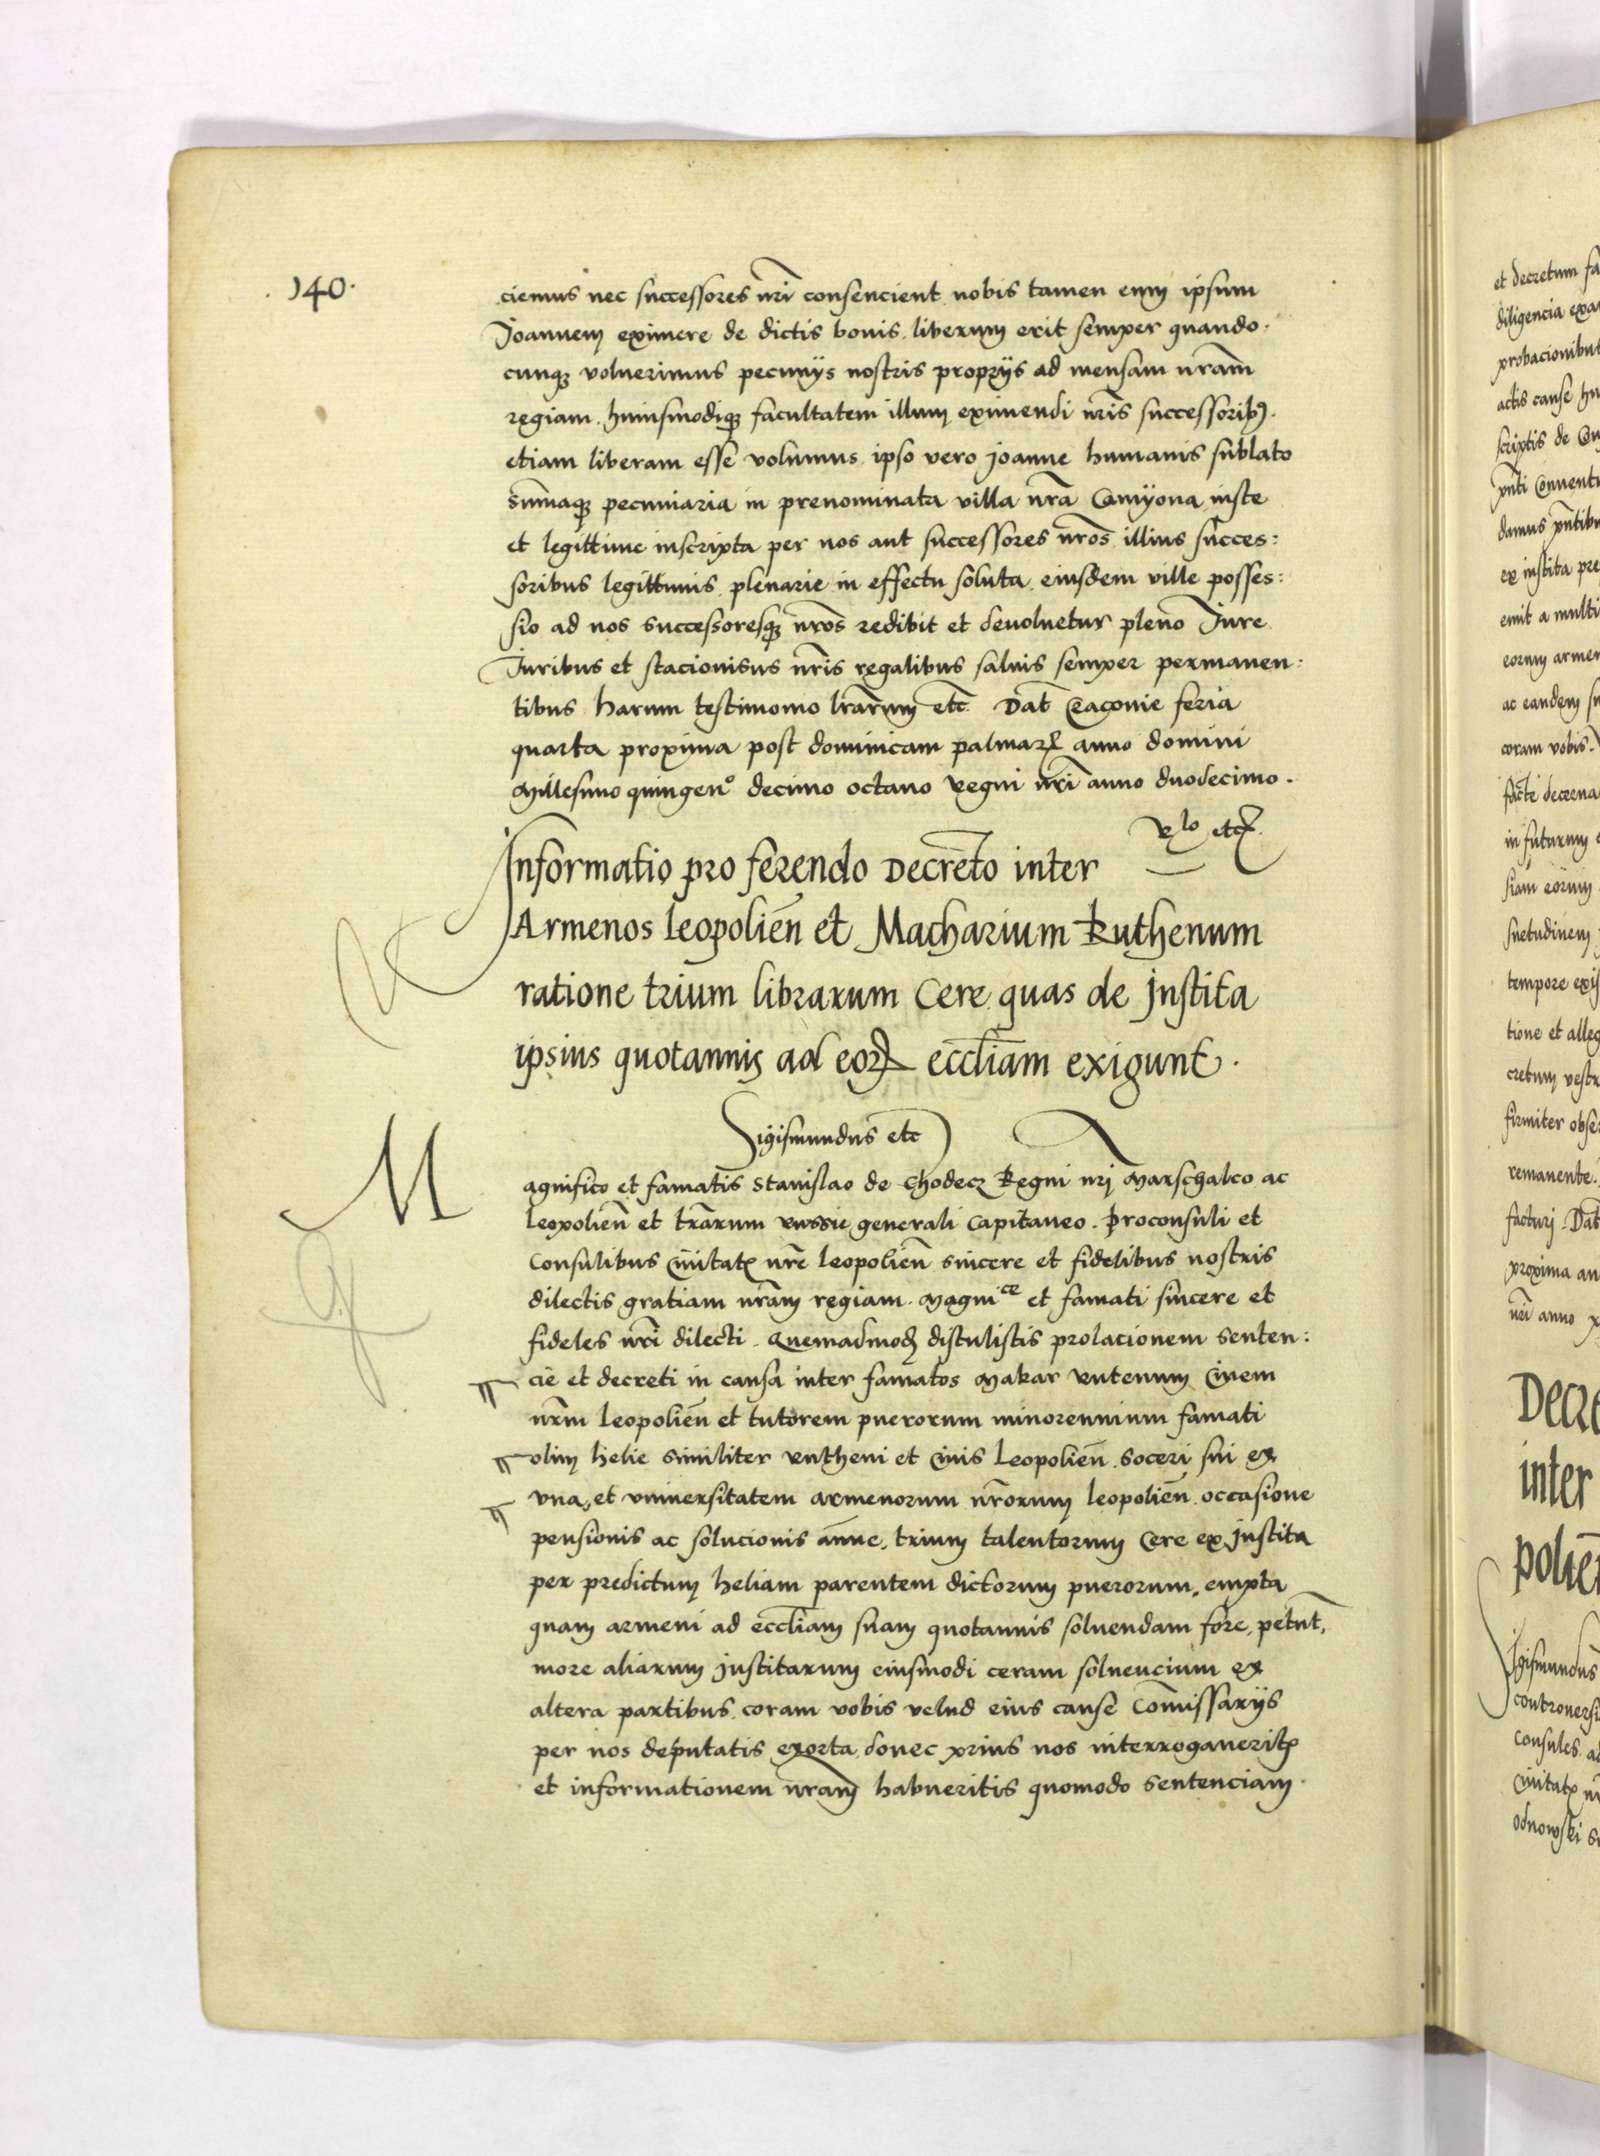 140.
ciemus nec successores nri consencient nobis tamen eum ipsum
Joannem eximere de dictis bonis liberum erit semper quando
cunq volnerimus pecunijs nostris proprijs ad mensam nram
regiam. huiusmodiq facultatem illum eximendi nris successorib.
etiam liberam esse volumus. ipso vero joanne humanis sublato
summaq pecuniaria in prenominata villa nra Camyona inste
et legittime inscripta per nos aut successores nros illius succes:
soribus legittimis plenarie in effectu soluta. eiusdem ville posses:
sio ad nos successoresq nros redibit et devoluetur pleno Iure
Iuribus et stacionibus nris regalibus saluis semper permanen:
tibus harum testimonio lrarum etc. Dat Cracouie feria
quarta proxima post dominicam palmar anno domini
Millesimo quingen° decimo octauo regni nri anno duodecimo.
Rlo etc
Informatio pro ferendo Decreto inter
Armenos leopolien et Macharium Ruthenum
ratione trium librarum Cere quas de Instita
ipsius quotannis ad eor eccliam exigunt.
Sigismundus etc
Magnifico et famatis Stanislao de Chodecz Regni nrj Marschalco ac
leopolien et trarum russie generali Capitaneo. Proconsuli et
Consulibus Ciuitat nre leopolien sincere et fidelibus nostris
dilectis gratiam nram regiam. Magnice et famati sincere et
fideles nri dilecti. Quemadmod distulistis prolacionem senten:
cie et decreti in causa inter famatos Makar rutenum Ciuem
nrm leopolien et tutorem puerorum minorennium famati
olim helie similiter rutheni et Ciuis leopolien. soceri sui ex
vna, et vniuersitatem armenorum nrorum leopolien. occasione
pensionis ac solucionis anue, trium talentorum Cere ex Instita
per predictum heliam parentem dictorum puerorum, empta
quam armeni ad eccliam suam quotannis soluendam fore, petunt,
more aliarum Institarum eiusmodi ceram soluencium ex
altera partibus coram vobis velud eius cause Comissarijs
per nos deputatis exorta, donec prius nos interrogauerit
et informationem nram habueritis quomodo sentenciam